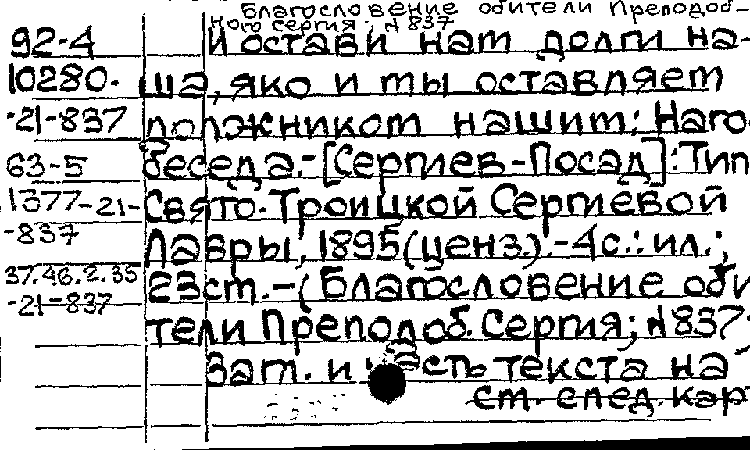 Благословение обители Преподоб-
ного Сергия. № 837
92-4 И остави нам долги на-
10280- ша, яко и мы оставляем
-21-837 должником нашим: Наго
63-5 беседа.-[Сергиев-Посад]: Тип
1377-21- Свято-Троицкой Сергиевой
-837 Лавры, 1895(ценз.).-4с.: ил.;
37.46.2.35 23см.-(Благословение оби
-21-837 тели Преподоб. Сергия; № 837.
Заг. и часть текста на
см. след. кар